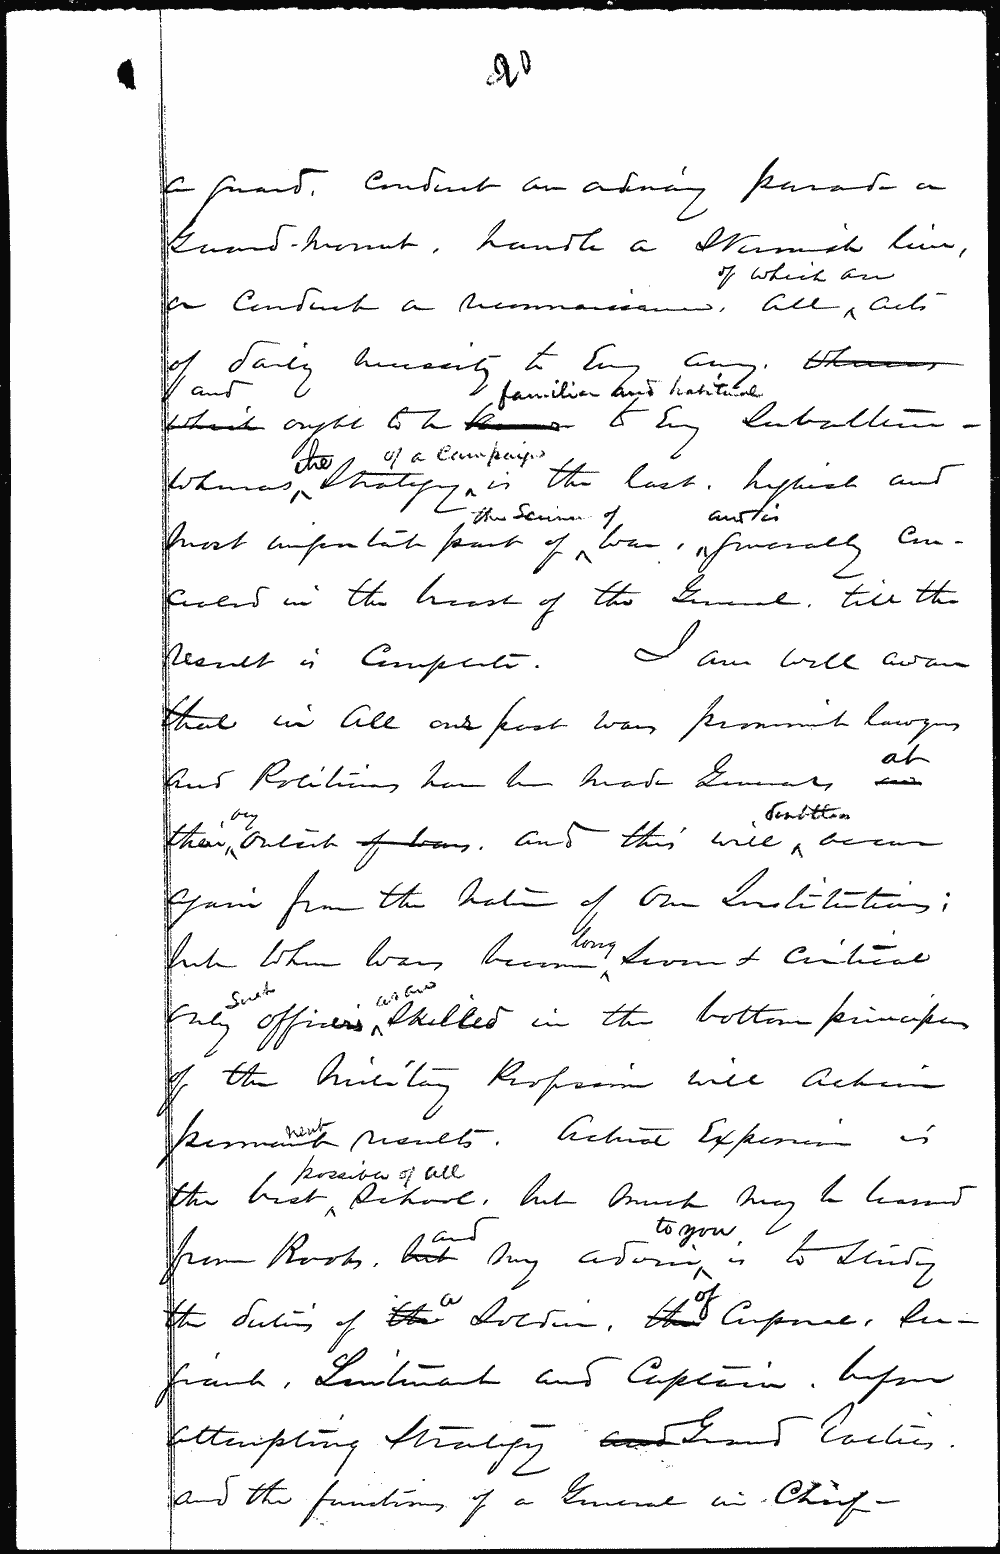 20
a guard, conduct an ordinary parade or
Guard-mount, handle a Skirmish line,
of which are
or conduct a reconnaissance. all acts
of daily necessity to Every army. whereas
and familiar and habitual
which ought to be to Every Subaltern -
the of a Campaign
whereas Strategy is the last, highest and
the Science of and is
most important part of war, generally con-
cealed in the breast of the General, till the
result is Complete. I am well aware
that in all our past wars prominent lawyers
at
and Politicians have been made Generals
very
doubtless
their outset of war, and this will occur
again from the nature of our Institutions;
long
but when wars become severe & critical
such as are
only officers skilled in the bottom principles
of the Military Profession will achieve
nent
permanent results. Actual Experience is
possible of all
the best School, but much may be learned
and to you
from Books, but my advice is to study
a of
the duties of the Soldier, the Corporal, Ser-
geant, Lieutenant and Captain, before
attempting Strategy and Grand Tactics,
and the functions of a General in Chief -